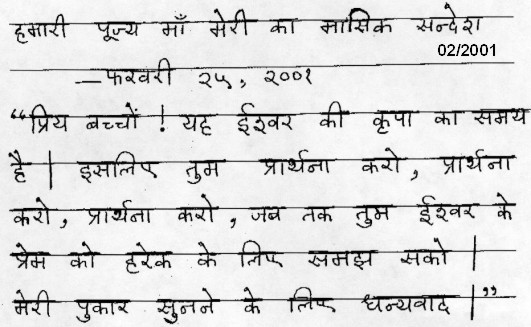 हमारी पूज्य माँ मेरी का मासिक सन्देश
02/2001
—फरवरी २५, २००१
“प्रिय बच्चों ! यह ईश्वर की कृपा का समय
है | इसलिए तुम प्रार्थना करो, प्रार्थना
करो, प्रार्थना करो, जब तक तुम ईश्वर के
प्रेम को हरेक के लिए समझ सको |
मेरी पुकार सुनने के लिए धन्यवाद |”